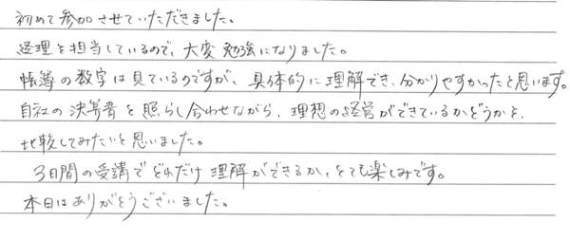 初めて参加させていただきました。
経理を担当しているので、大変勉強になりました。
帳簿の数字は見ているのですが、具体的に理解でき、分かりやすかったと思います。
自社の決算書を照らし合わせながら、理想の経営ができているかどうかを、
比較してみたいと思いました。
3日間の受講でどれだけ理解ができるか、とても楽しみです。
本日はありがとうございました。